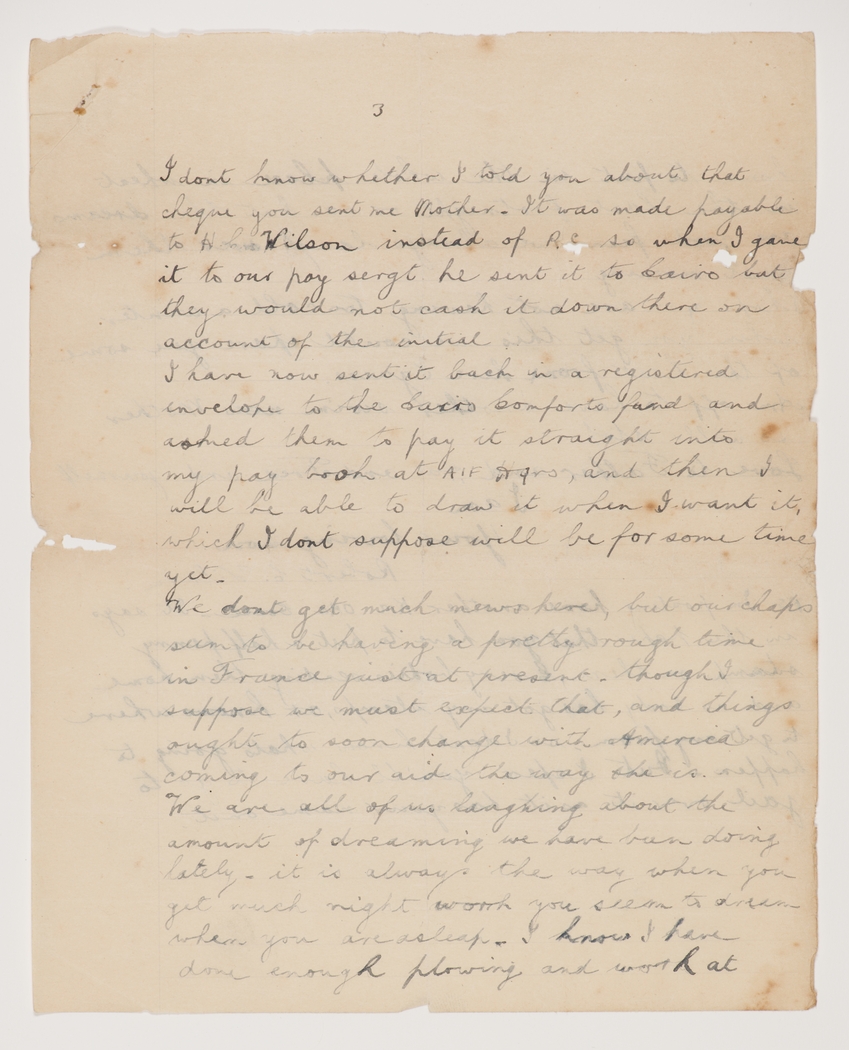 3
I dont know whether I told you about that
cheque you sent me Mother - It was made payable
to H Wilson instead of R.C so when I gave
it to our pay sergt he sent it to Cairo but
they would not cash it down there on
account of the initial
I have now sent it back in a registered
envelope to the Cairo Comforts fund and
asked them to pay it straight into
my pay book at AIF Hqrs, and then I
will be able to draw it when I want it,
which I dont suppose will be for some time
yet -
We dont get much news here, but our chaps
seem to be having a pretty rough time
in France just at present - though I
suppose we must expect that, and things
ought to soon change with America
coming to our aid the way she is.
We are all of us laughing about the
amount of dreaming we have been doing
lately - it is always the way when you
get much night work you seem to dream
when you are asleep - I know I have
done enough plowing and work at